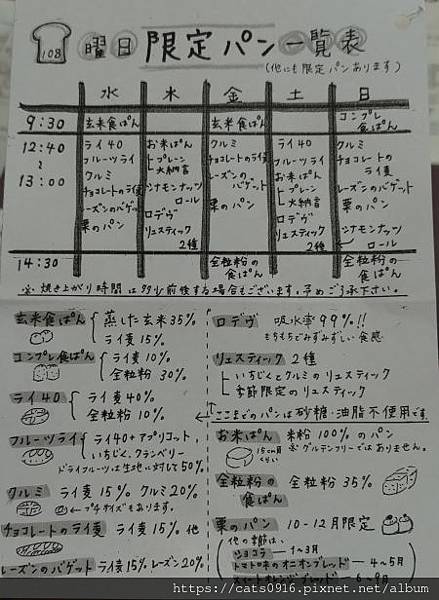 108 曜日 限定パン一覧表
(他にも限定パンあります)
水 木 金 土 日
9:30 玄米食ぱん 玄米食ぱん コンプレ食ぱん
12:40 〜 13:00
ライ40
フルーツライ
クルミ
チョコレートのライ麦
レーズンのバゲット
栗のパン
お米ぱん
プレーン
大納言
シナモンナッツロール
ロデヴ
リュスティック 2種
クルミ
チョコレートのライ麦
レーズンのバゲット
栗のパン
ライ40
フルーツライ
お米ぱん
プレーン
大納言
ロデヴ
リュスティック 2種
クルミ
チョコレートのライ麦
レーズンのバゲット
栗のパン
シナモンナッツロール
14:30 全粒粉の食ぱん 全粒粉の食ぱん
※ 焼き上がり時間は多少前後する場合もございます。予めご了承下さい。
玄米食ぱん 蒸した玄米35%
ライ麦 15%
コンプレ食ぱん ライ麦 10%
全粒粉 30%
ライ40 ライ麦40%
全粒粉 10%
フルーツライ ライ40+アプリコット,
いちじく,クランベリー
ドライフルーツは生地に対して50%
クルミ ライ麦 15% クルミ20%
プチサイズもあります。
チョコレートのライ麦 ライ麦 15% 他
レーズンのバゲット ライ麦15% レーズン20%
ロデヴ 吸水率99%!!
もちもちでみずみずしい食感
リュスティック 2種
いちじくとクルミのリュスティック
季節限定のリュスティック
ここまでのパンは砂糖・油脂不使用です。
お米ぱん 米粉 100%のパン
15cmくらい
※ グルテンフリーではありません。
全粒粉の食ぱん 全粒粉 35%
栗のパン 10-12月限定
他の季節は、
ショコラ — 1〜3月
トマト味のオニオンブレッド — 4〜5月
スイートオレンジブレッド — 6〜9月
https://cats0916.pixnet.net/album